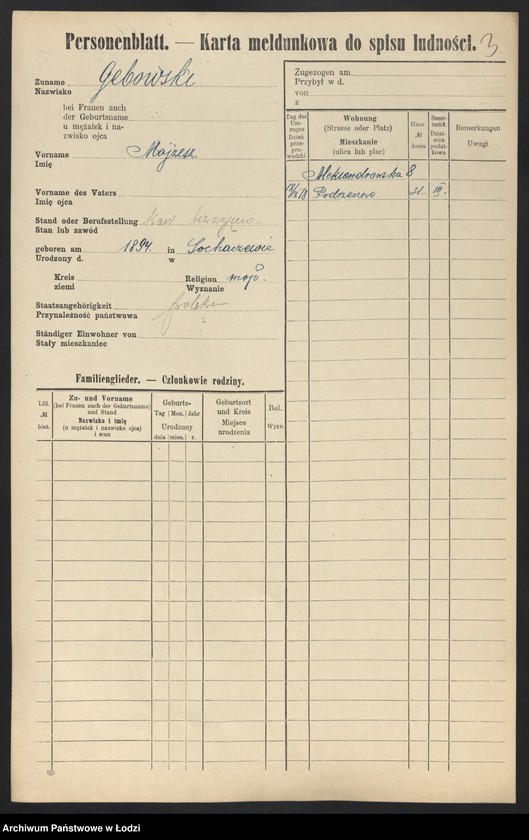 Personenblatt. — Karta meldunkowa do spisu ludności. 3
Zuname Gębowski
Nazwisko
bei Frauen auch
der Geburtsname
u mężatek i na-
zwisko ojca
Vorname Mojżesz
Imię
Vorname des Vaters
Imię ojca
Stand oder Berufsstellung
Stan lub zawód
geboren am 1894. in Sochaczewie
Urodzony d. w
Kreis Religion mojż.
ziemi Wyznanie
Staatsangehörigkeit polska
Przynależność państwowa ?
Ständiger Einwohner von
Stały mieszkaniec
Zugezogen am
Przybył w d.
von
z
Tag des Um-zuges Dzień prze-pro-wadzki
Wohnung
(Strasse oder Platz)
Mieszkanie
(ulica lub plac)
Haus № domu
Steuer-bezirk Dziel-nica podat-kowa
Bemerkungen
Uwagi
Aleksandrowska 8
Podrzeczna 21. III.
Familienglieder. — Członkowie rodziny.
Lfd. № bież.
Zu- und Vorname
(bei Frauen auch der Geburtsname)
und Stand
Nazwisko i imię
(u mężatek i nazwisko ojca)
i stan
Geburts-
Tag Mon. Jahr
Urodzony
dnia mies. r.
Geburtsort
und Kreis
Miejsce
urodzenia
Rel.
Wyzn.
Archiwum Państwowe w Łodzi